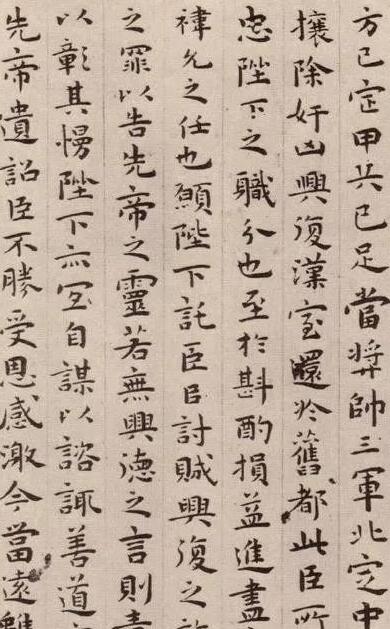 方已定甲兵已足當奬帥三軍北定中
攘除奸凶興復漢室還於舊都此臣所
忠陛下之職分也至於斟酌損益進盡
禕允之任也願陛下託臣以討賊興復之
之罪以告先帝之靈若無興德之言則責
以彰其慢陛下亦宜自謀以諮諏善道
先帝遺詔臣不勝受恩感激今當遠離